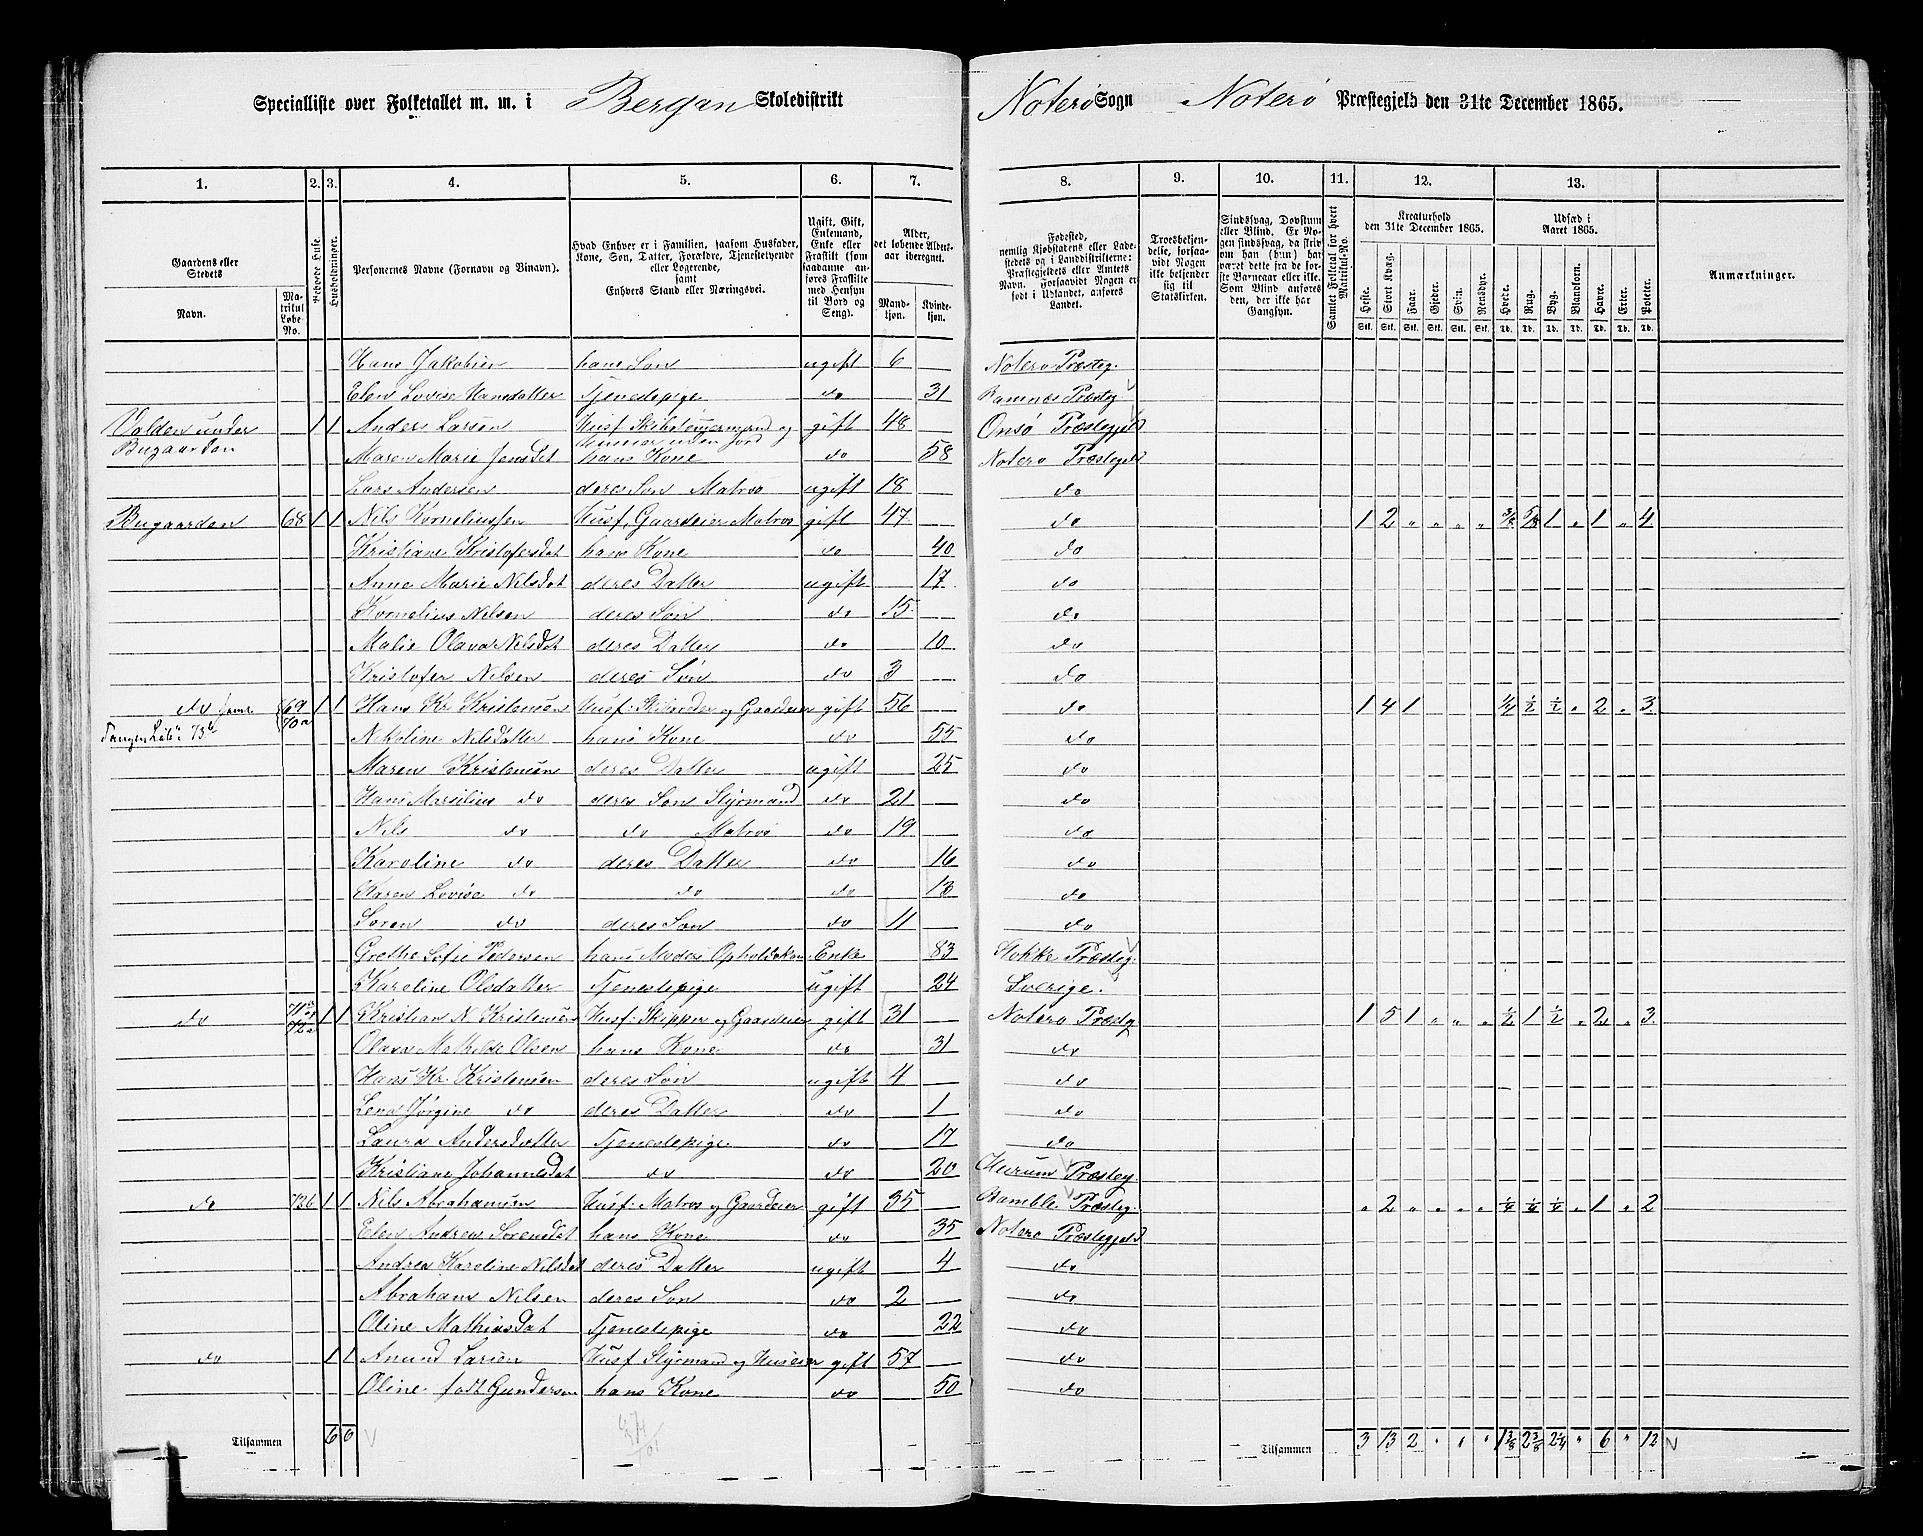 Specialliste over Folketallet m. m. i Bergan Skoledistrikt Noterø Sogn Noterø Præstegjeld den 31te December 1865.
1. 2. 3. 4. 5. 6. 7. 8. 9. 10. 11. 12. 13.
Gaardens eller Stedets
Navn. Matrikul Løbe-No.
Beboede Huse.
Husholdninger.
Personernes Navne (Fornavn og Binavn).
Hvad Enhver er i Familien, saasom Husfader, Kone, Søn, Datter, Forældre, Tjenestetyende eller Logerende, samt Enhvers Stand eller Næringsvei.
Ugift, Gift, Enkemand, Enke eller Fraskilt (som saadanne anføres Fraskilte med Hensyn til Bord og Seng).
Alder, det løbende Aldersaar iberegnet.
Mandkjøn. Kvindekjøn.
Fødested, nemlig Kjøbstadens eller Ladestedets og i Landdistrikterne: Præstegjeldets eller Amtets Navn. Forsaavidt Nogen er født i Udlandet, anføres Landet.
Troesbekjendelse, forsaavidt Nogen ikke bekjender sig til Statskirken.
Sindssvag, Døvstum eller Blind. Er Nogen sindssvag, da skrives om han (hun) har været dette fra de første Barneaar eller ikke. Som Blind anføres den, der ikke har Gangsyn.
Samlet Folketal for hvert Matrikul-No.
Kreaturhold den 31te December 1865.
Heste. Stort Kvæg. Faar. Gjeder. Svin. Rensdyr.
Udsæd i Aaret 1865.
Hvede. Rug. Byg. Blandkorn. Havre. Erter. Poteter.
Anmærkninger.
Hans Jakobsen hans Søn ugift 6 Noterø Præsteg.
Elen Lovise Hansdatter Tjenestepige do 31 Ramnæs Præsteg
Volden under 1 1 Anders Larsen Husf Skibstømmermand og gift 48 Onsø Præstegjeld
Bugaarden huseier uden Jord
Maren Marie Jensdat hans Kone do 58 Noterø Præstegjeld
Lars Andersen deres Søn Matros ugift 18 do
Bugaarden 68 1 1 Nils Korneliussen Husf, Gaardeier Matros gift 47 do 1 2 " " " " 3/8 5/8 1 " 1 " 4
Kristiane Kristofersdat hans Kone do 40 do
Anne Marie Nilsdat deres Datter ugift 17 do
Kornelius Nilsen deres Søn do 15 do
Malie Olava Nilsdat deres Datter do 10 do
Kristofer Nilsen deres Søn do 3 do
do 69 1 1 Hans Kr Kristensen Husf: Skibsreder og Gaardeier gift 56 do 1 4 1 1/4 1/2 1/2 " 2 " 3
70a
73b Nikoline Nilsdatter hans Kone do 55 do
Maren Kristensen deres Datter ugift 25 do
Hans Marsilius do deres Søn Styrmand do 21 do
Nils do do Matros do 19 do
Karoline do deres Datter do 16 do
Karen Lovise do do do 13 do
Søren do deres Søn do 11 do
Grethe Sofie Pedersen hans Moder Opholdskone Enke 83 Stokke Præsteg.
Karoline Olsdatter Tjenestepige ugift 24 Sverige.
do 72a 1 1 Kristian N Kristensen Husf: Skipper og Gaardeier gift 31 Noterø Præsteg 1 5 1 " " " 1/2 1 1/2 " 2 " 3
Olava Mathilde Olsen hans Kone do 31 do
Hans Kr. Kristensen deres Søn ugift 4 do
Lena Jørgine do deres Datter do 1 do
Laura Andersdatter Tjenestepige do 17 do
Kristiane Johannesdat do do 20 Hurum Præsteg.
do 73b 1 1 Nils Abrahamsen Husf: Matros og Gaardeier gift 35 Bamble Præsteg. " 2 " " " " 1/4 1/4 1/4 " 1 " 2
Elen Andrea Sørensdat hans Kone do 35 Noterø Præstegjeld
Andrea Karoline Nilsdat deres Datter ugift 4 do
Abraham Nilsen deres Søn do 2 do
Oline Mathiasdat Tjenestepige do 22 do
do 1 1 Anund Larsen Husf Styrmand og Huseier gift 57 do
Oline født Gundersen hans Kone do 50 do
Tilsammen 6 6 Tilsammen 3 13 2 " " " 1 3/8 2 3/8 2 1/4 " 6 " 12